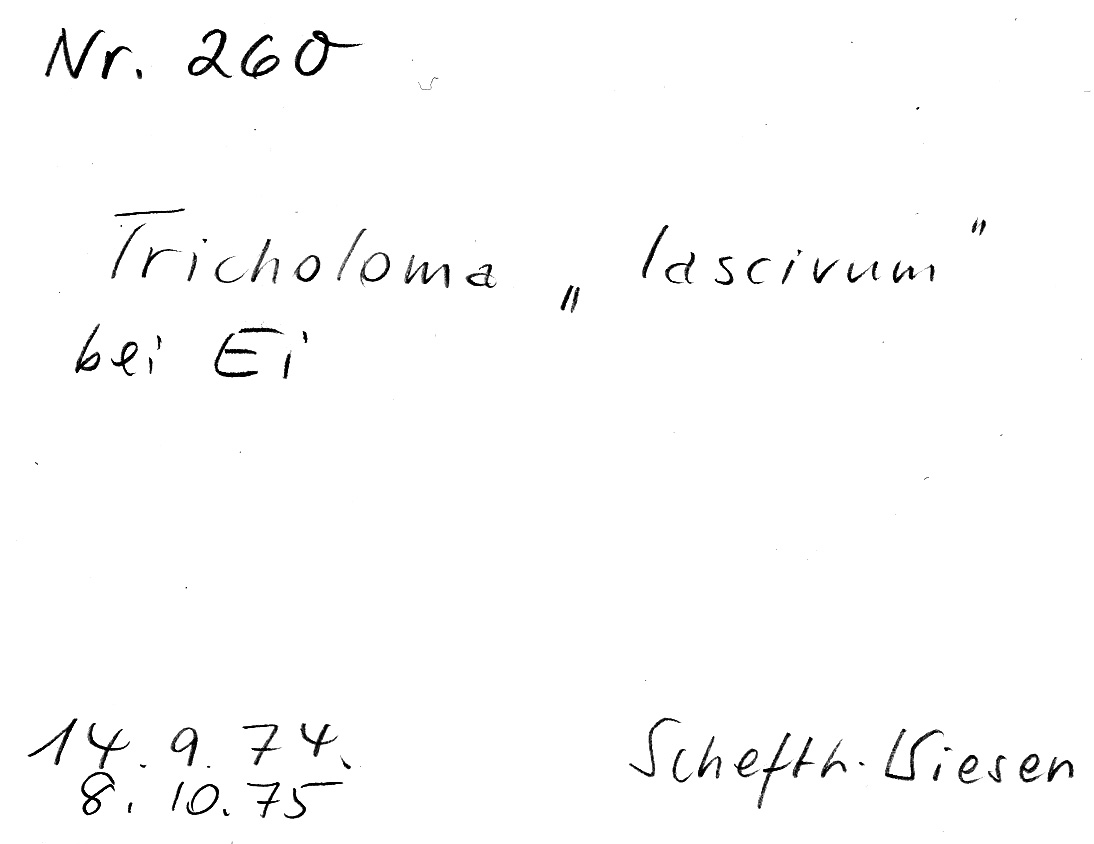 Nr. 260
Tricholoma „lascivum"
bei Ei
14.9.74.
8.10.75
Schefth. Wiesen